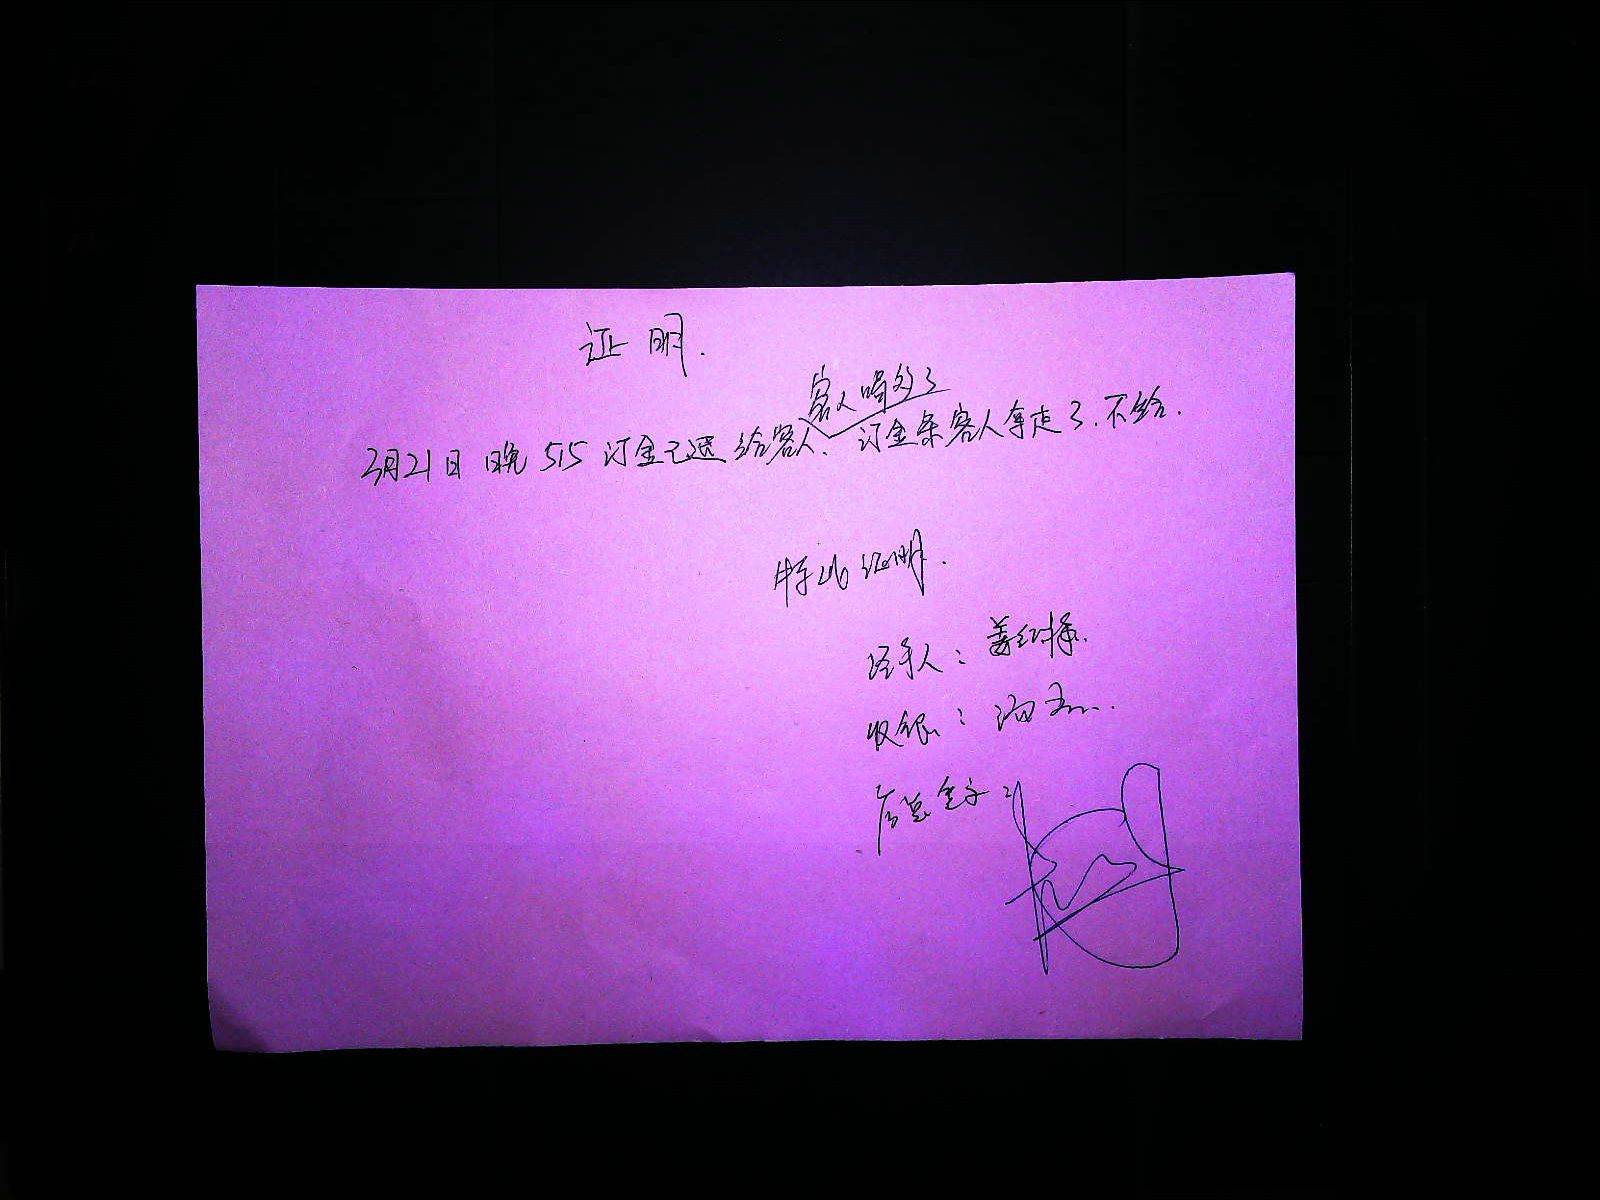 证明.
客人喝多了
3月21日 晚 515 订金已退给客人、订金条客人拿走了.不给.
特此证明.
经手人：姜红
收银：汤
房总签字：